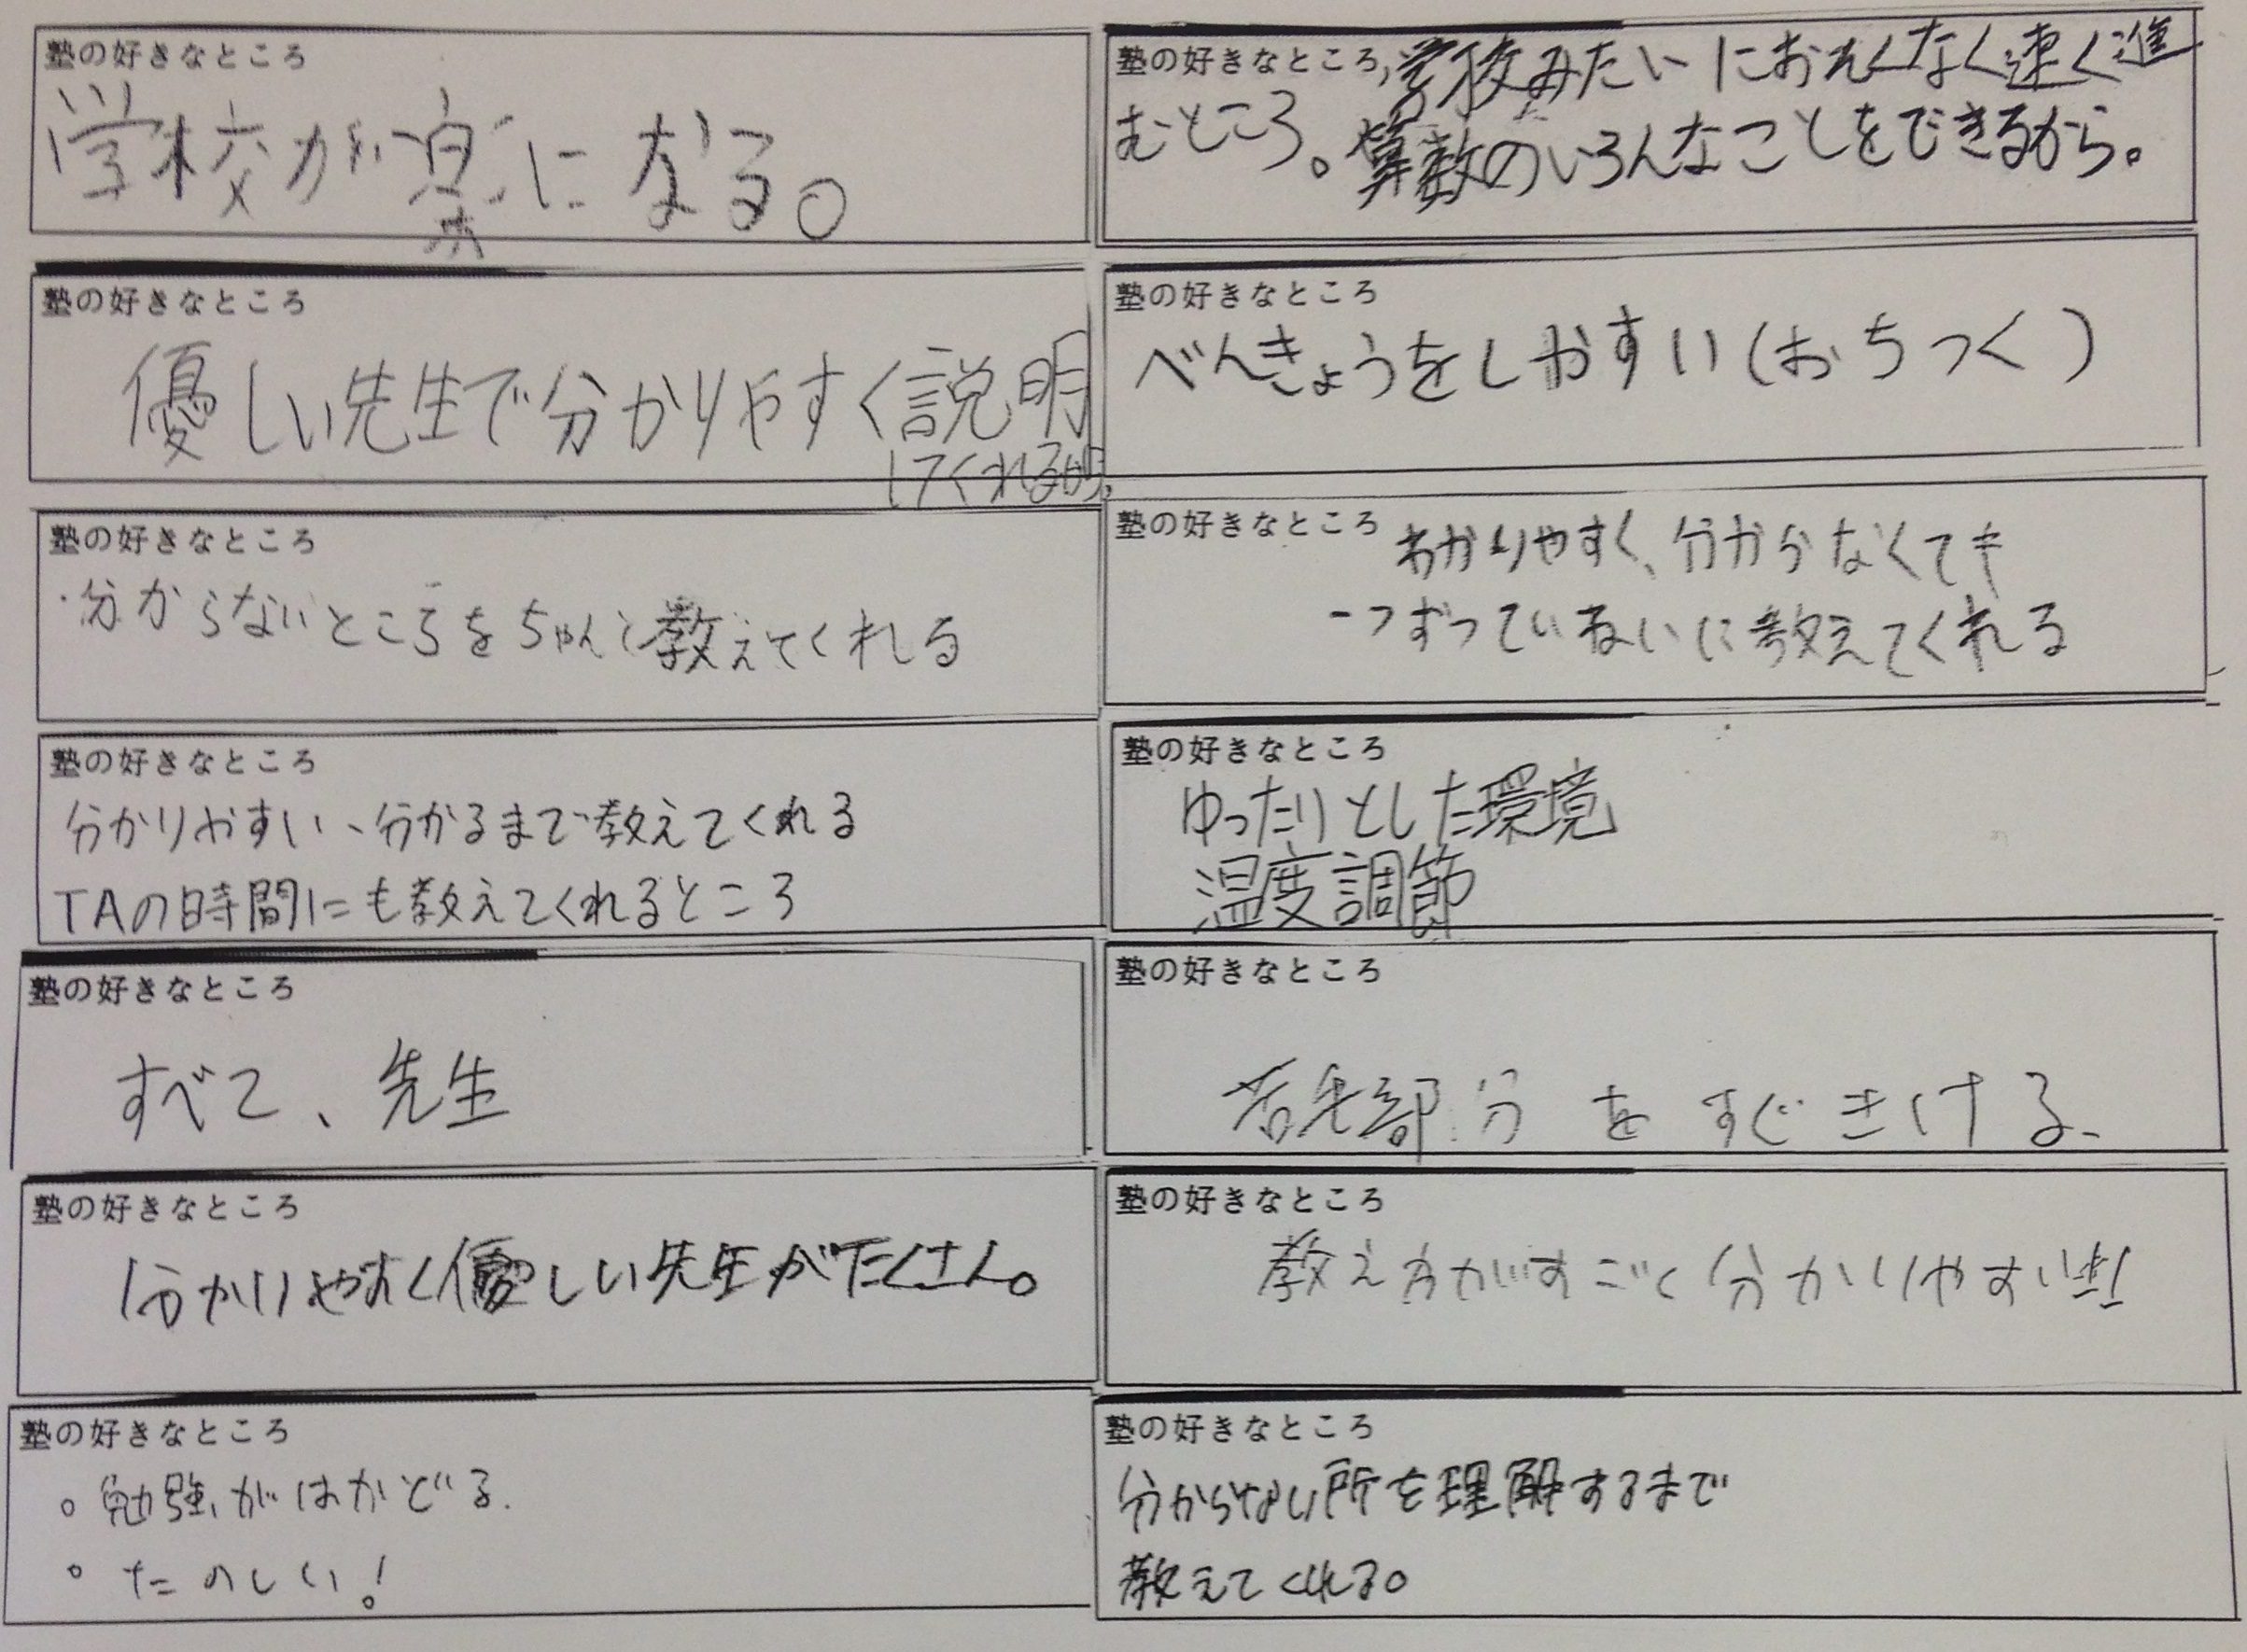 塾の好きなところ
学校が楽になる。
塾の好きなところ
学校みたいにおそくなく速く進
むところ。算数のいろんなことをできるから。
塾の好きなところ
優しい先生で分かりやすく説明
してくれるから
塾の好きなところ
べんきょうをしやすい(おちつく)
塾の好きなところ
・分からないところをちゃんと教えてくれる
塾の好きなところ
わかりやすく、分からなくても
一つずつていねいに教えてくれる
塾の好きなところ
分かりやすい、分かるまで教えてくれる
TAの時間にも教えてくれるところ
塾の好きなところ
ゆったりとした環境
温度調節
塾の好きなところ
すべて、先生
塾の好きなところ
部分をすぐきける。
塾の好きなところ
分かりやすく優しい先生がたくさん。
塾の好きなところ
教え方がすごく分かりやすい!!
塾の好きなところ
○勉強がはかどる。
○たのしい!
塾の好きなところ
分からない所を理解するまで
教えてくれる。